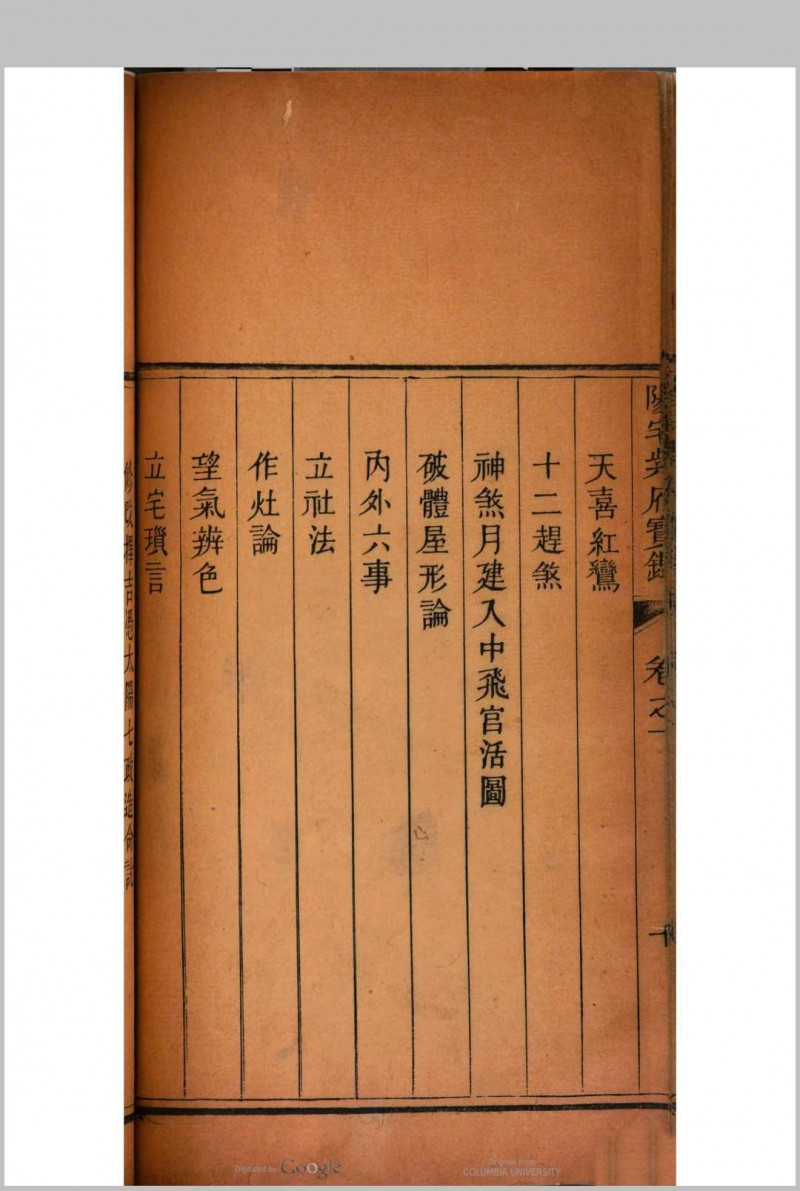 陽宅紫府寶鑑
卷之一
天喜紅鸞
十二趕煞
神煞月建入中飛官活圖
破體屋形論
內外六事
立社法
作灶論
望氣辨色
立宅瑣言
修改擇吉憑太陽七政造命訣
Digitized by Google
Original from
COLUMBIA UNIVERSITY